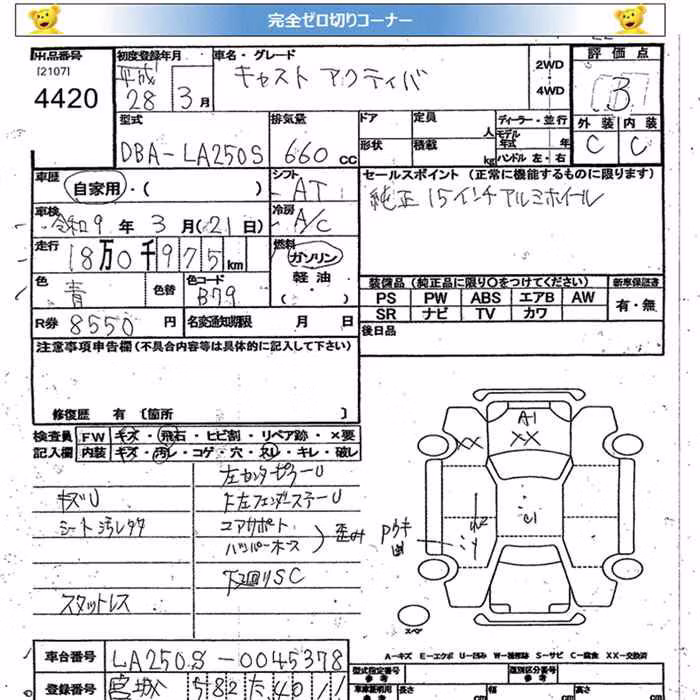 完全ゼロ切りコーナー
出品番号
[2107]
4420
初度登録年月
平成
28 3月
車名・グレード
キャスト アクティバ
2WD
4WD
評価点
B
外装 内装
C C
型式
DBA-LA250S
排気量
660cc
ドア
形状
定員
人
積載
kg
ディーラー・並行
モデル年式 年
ハンドル 左・右
車歴
自家用・( )
シフト
AT
車検
令和9年3月(21日)
冷房
A/C
走行
18万0千975km
燃料
ガソリン
軽油・
( )
色
青
色替
色コード
B79
R券 8550円
名変通知期限 月 日
セールスポイント(正常に機能するものに限ります)
純正15インチアルミホイール
装備品(純正品に限り〇をつけてください)
新車保証書
PS PW ABS エアB AW
SR ナビ TV カワ
有・無
後日品
注意事項申告欄(不具合内容等は具体的に記入して下さい)
修復歴 有〔箇所 〕
検査員記入欄
FW キズ・飛石・ヒビ割・リペア跡・×要
内装 キズ・汚レ・コゲ・穴・スレ・キレ・破レ
キズU
シート汚レ
スタットレス
左センターピラーU
コアサポート
歪み
下回りSC
A1
XX
XX
C1
スペア
A-キズ E-エクボ U-凹み W-補修跡 S-サビ C-腐食 XX-交換済
車台番号 LA250S-0045378
登録番号 宮城 582 た 40 11
型式指定番号
参考
類別区分番号
参考
長さ
cm
幅
cm
高さ
cm